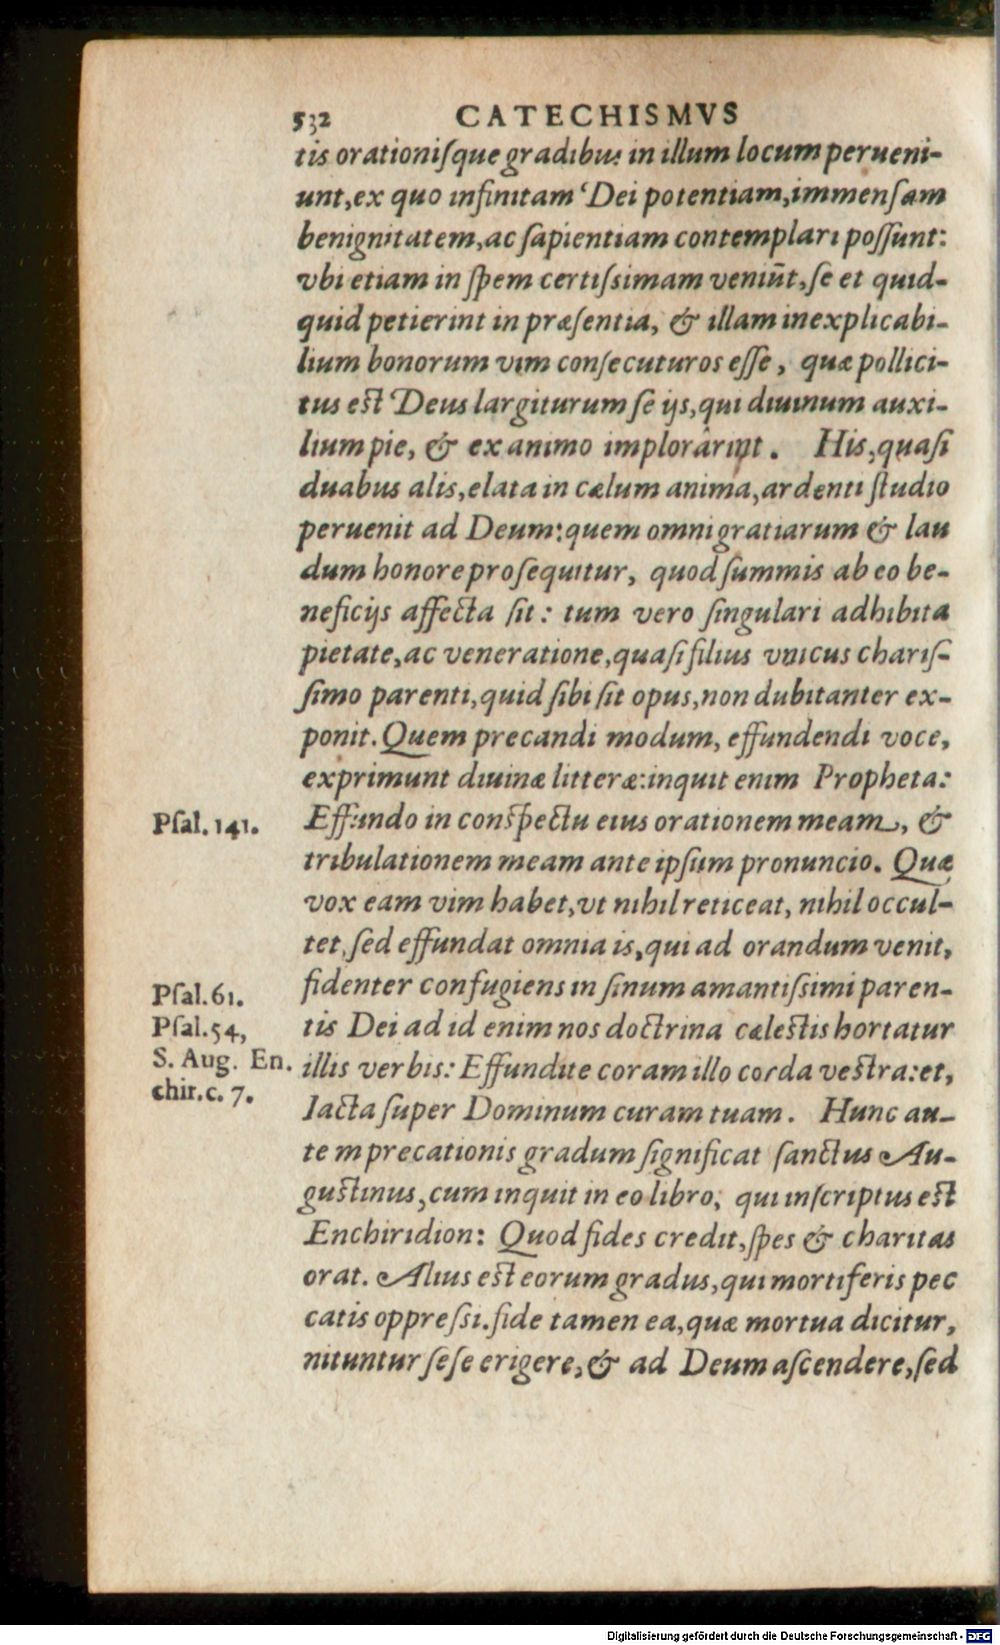 532 CATECHISMVS
tis orationiſque gradibus in illum locum perueni-
unt, ex quo infinitam Dei potentiam, immenſam
benignitatem, ac ſapientiam contemplari poſſunt:
vbi etiam in ſpem certiſsimam veniūt, ſe et quid-
quid petierint in præſentia, & illam inexplicabi-
lium bonorum vim conſecuturos eſſe, quæ pollici-
tus est Deus largiturum ſe ijs, qui diuinum auxi-
lium pie, & ex animo implorârint. His, quaſi
duabus alis, elata in cælum anima, ardenti ſtudio
peruenit ad Deum: quem omni gratiarum & lau
dum honore proſequitur, quod ſummis ab eo be-
neficijs affecta ſit: tum vero ſingulari adhibita
pietate, ac veneratione, quaſi filius vnicus chariſ-
ſimo parenti, quid ſibi ſit opus, non dubitanter ex-
ponit. Quem precandi modum, effundendi voce,
exprimunt diuinæ litteræ: inquit enim Propheta:
Psal. 141.
Effundo in conſpectu eius orationem meam, &
tribulationem meam ante ipſum pronuncio. Quæ
vox eam vim habet, vt nihil reticeat, nihil occul-
tet, ſed effundat omnia is, qui ad orandum venit,
Pſal. 61.
fidenter confugiens in ſinum amantiſsimi paren-
Pſal. 54,
tis Dei ad id enim nos doctrina cælestis hortatur
S. Aug. En.
illis verbis: Effundite coram illo corda vestra: et,
chir. c. 7.
Iacta ſuper Dominum curam tuam. Hunc au-
te m precationis gradum ſignificat ſanctus Au-
gustinus, cum inquit in eo libro, qui inſcriptus est
Enchiridion: Quod fides credit, ſpes & charitas
orat. Alius est eorum gradus, qui mortiferis pec
catis oppreſsi. fide tamen ea, quæ mortua dicitur,
nituntur ſeſe erigere, & ad Deum aſcendere, ſed
Digitalisierung gefördert durch die Deutsche Forschungsgemeinschaft - DFG